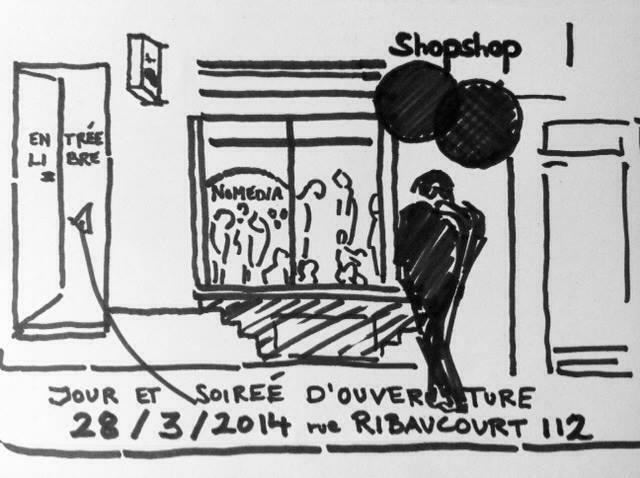 Shopshop
EN TRÉE
LI BRE
NOMEDIA
JOUR ET SOIREÉ D'OUVERTURE
28/3/2014 rue RIBAUCOURT 112